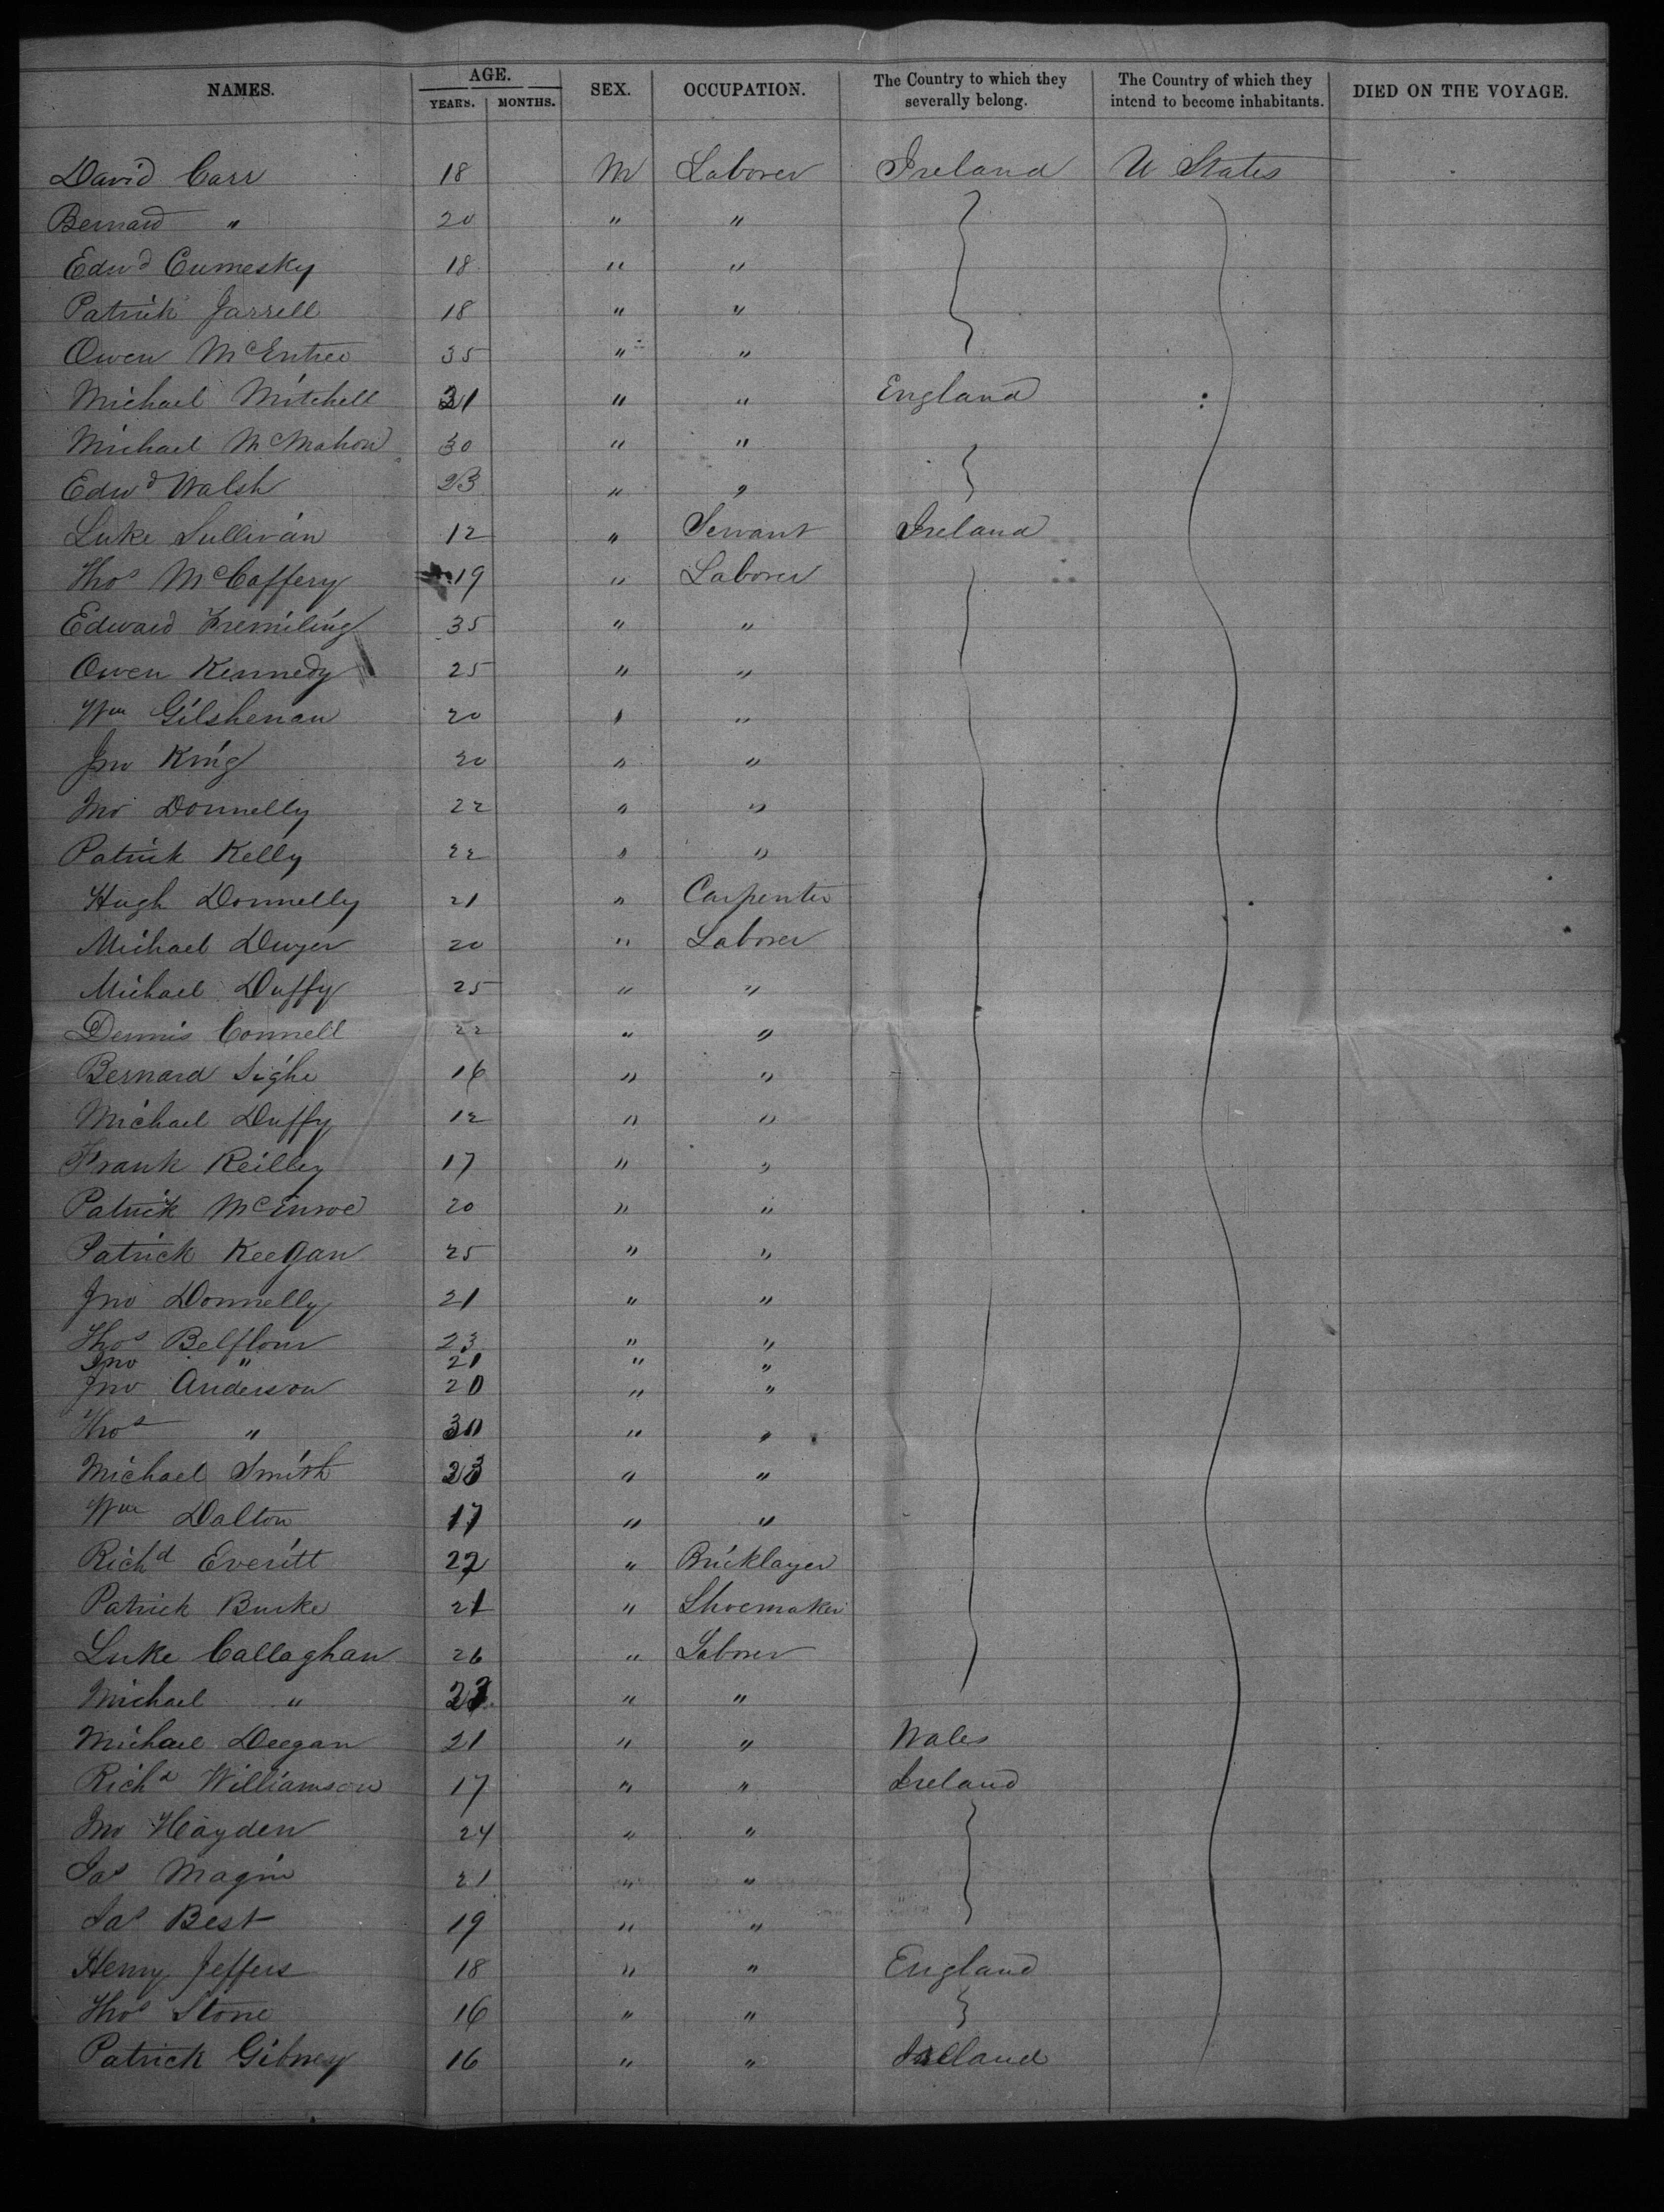 NAMES. AGE. SEX. OCCUPATION. The Country to which they severally belong. The Country of which they intend to become inhabitants. DIED ON THE VOYAGE.
YEARS. MONTHS.
David Carr 18 M Laborer Ireland U States
Bernard " 20 " "
Edwd Cumesky 18 " "
Patrick Farrell 18 " "
Owen McEntee 35 " "
Michael Mitchell 31 " " England
Michael McMahon 30 " "
Edwd Walsh 23 " "
Luke Sullivan 12 " Servant Ireland
Thos McCaffery 19 " Laborer
Edward Fremiling 35 " "
Owen Kennedy 25 " "
Wm Gilshenan 20 " "
Jno King 20 " "
Jno Donnelly 22 " "
Patrick Kelly 22 " "
Hugh Donnelly 21 " Carpenter
Michael Dwyer 20 " Laborer
Michael Duffy 25 " "
Dennis Connell 22 " "
Bernard Sighe 16 " "
Michael Duffy 12 " "
Frank Reilley 17 " "
Patrick McEnroe 20 " "
Patrick Keegan 25 " "
Jno Donnelly 21 " "
Thos Belflour 23 " "
Jno " 21 " "
Jno Anderson 20 " "
Thos " 30 " "
Michael Smith 23 " "
Wm Dalton 17 " "
Richd Everitt 22 " Bricklayer
Patrick Burke 21 " Shoemaker
Luke Callaghan 26 " Laborer
Michael " " "
Michael Deegan 21 " " Wales
Richd Williamson 17 " " Ireland
Jno Hayden 24 " "
Jas Magin 21 " "
Jas Best 19 " "
Henry Jeffers 18 " " England
Thos Stone 16 " "
Patrick Gibney 16 " " Ireland